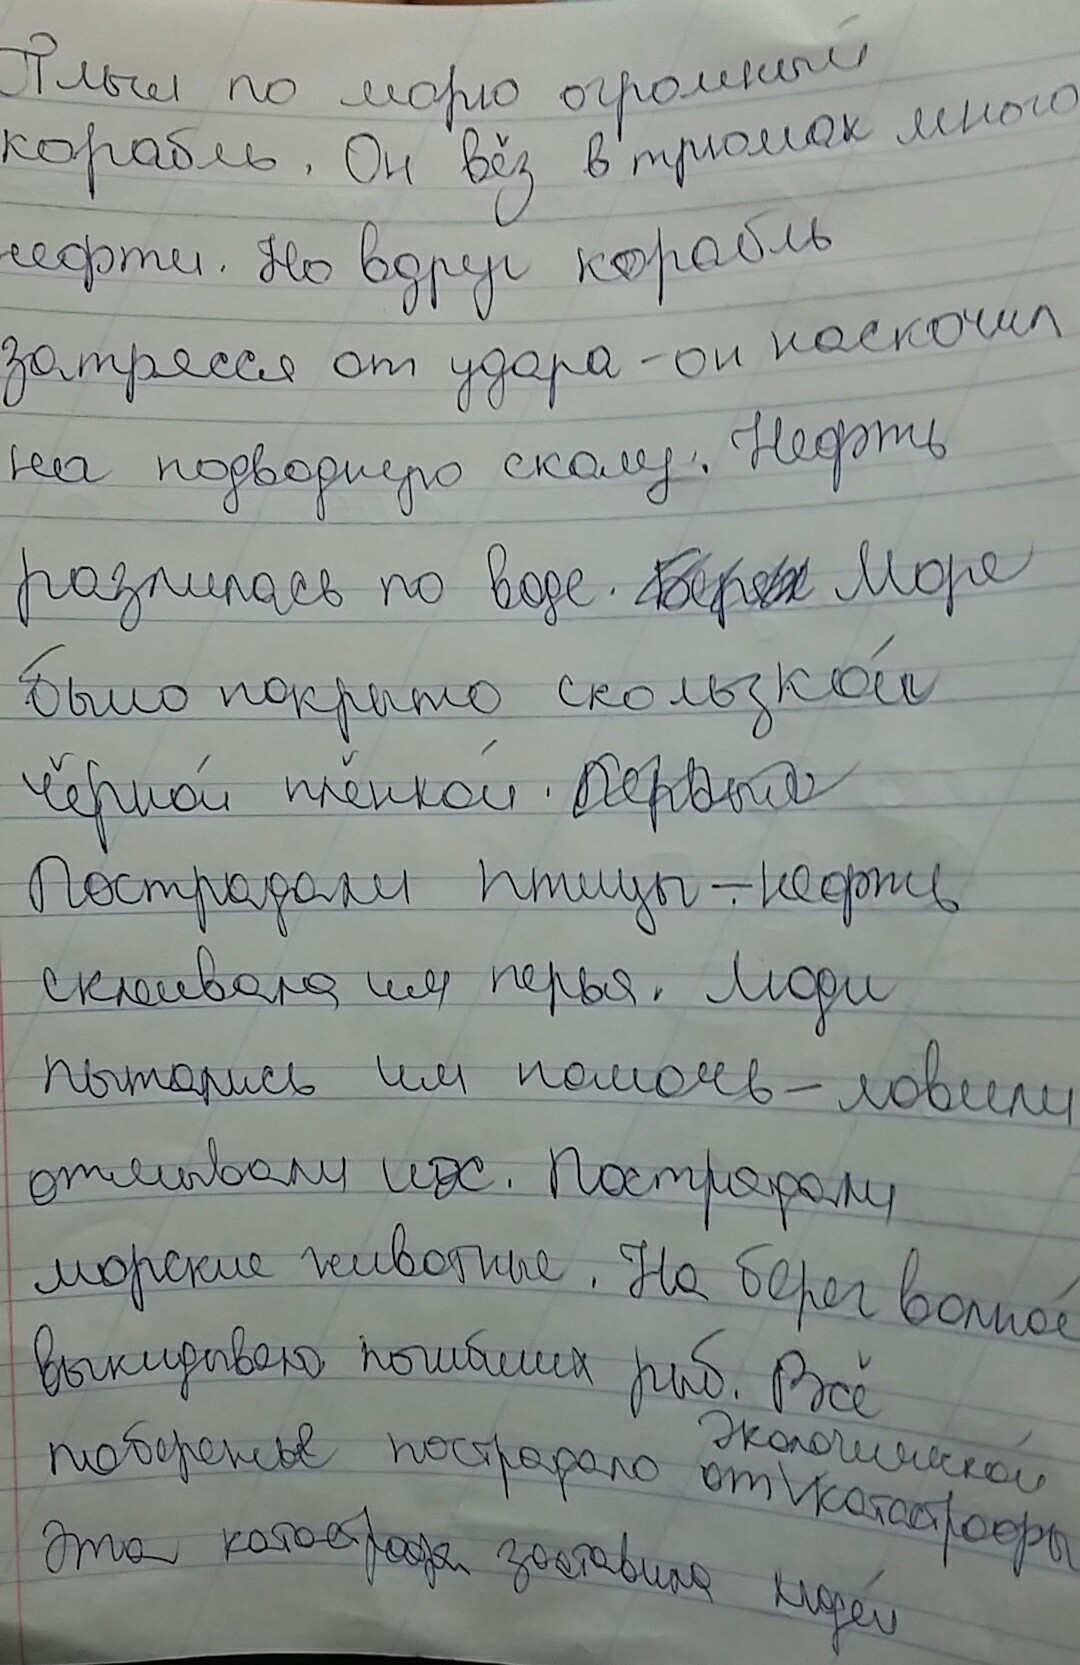 Плыл по морю огромный
корабль. Он вёз в трюмах много
нефти. Но вдруг корабль
затрясся от удара - он наскочил
на подводную скалу. Нефть
разлилась по воде. Море
было покрыто скользкой
чёрной плёнкой.
Пострадали птицы - нефть
склеивала им перья. Люди
пытались им помочь - ловили
отмывали их. Пострадали
морские животные. На берег волной
выкидывало погибших рыб. Всё
побережье пострадало от экологической катастрофы
Эта катастрофа заставила людей